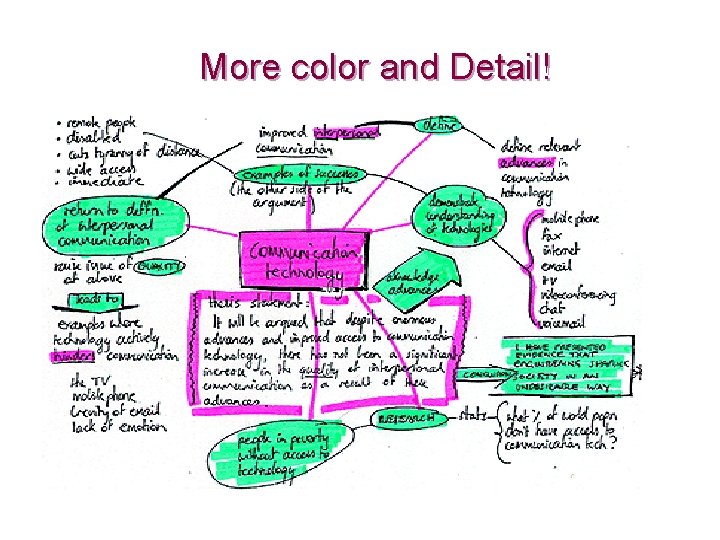 More color and Detail!
• remote people
• disabled
• cuts tyranny of distance
• wide access
• immediate
improved interpersonal
communication
define
define relevant
advances in
communication
technology
examples of successes
(the other side of the
argument)
demonstrate
understanding
of technologies
return to defn.
of interpersonal
communication
mobile phone
fax
internet
email
TV
videoconferencing
chat
voicemail
communication
technology
raise issue of QUALITY
of above
knowledge
advances
leads to
thesis statement:
It will be argued that despite enormous
advances and improved access to communication
technology, there has not been a significant
increase in the quality of interpersonal
communication as a result of these
advances.
examples where
technology actively
hinders communication
I HAVE PRESENTED
EVIDENCE THAT
ENGINEERING
SOCIETY IN AN
WAY
the TV
mobile phone
brevity of email
lack of emotion
RESEARCH
stats
what % of world popn
don't have access to
communication tech?
people in poverty
without access to
technology